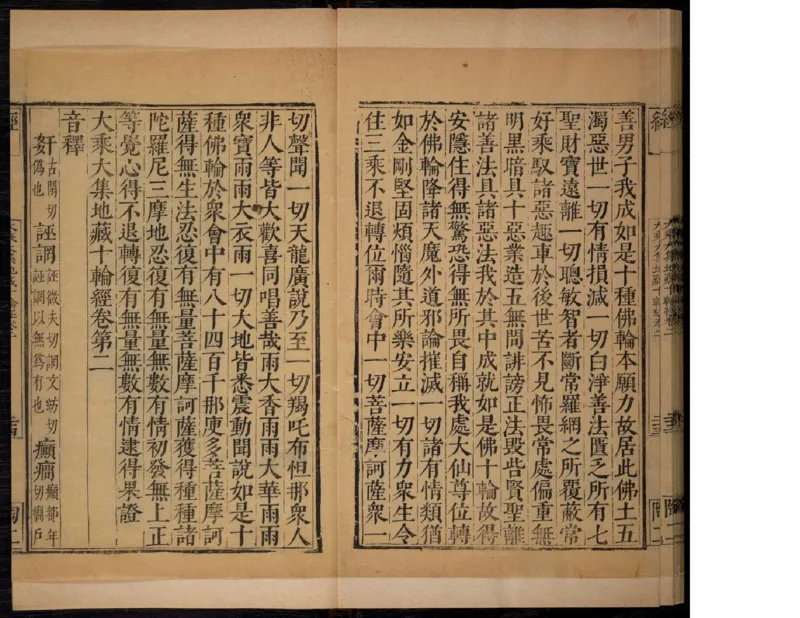 善男子我成如是十種佛輪本願力故居此佛土五
濁惡世一切有情損減一切白淨善法匱乏所有七
聖財寶遠離一切聰敏智者斷常羅網之所覆蔽常
好乘馭諸惡趣車於後世苦不見怖畏常處偏重無
明黑暗具十惡業造五無間誹謗正法毀呰賢聖離
諸善法具諸惡法我於其中成就如是佛十輪故得
安隱住得無驚恐得無所畏自稱我處大仙尊位轉
於佛輪降諸天魔外道邪論摧滅一切諸有情類猶
如金剛堅固煩惱隨其所樂安立一切有力衆生令
住三乘不退轉位爾時會中一切菩薩摩訶薩衆一
切聲聞一切天龍廣說乃至一切羯吒布怛那衆人
非人等皆大歡喜同唱善哉雨大香雨雨大華雨雨
衆寶雨雨大衣雨一切大地皆悉震動聞說如是十
種佛輪於衆會中有八十四百千那庾多菩薩摩訶
薩得無生法忍復有無量菩薩摩訶薩獲得種種諸
陀羅尼三摩地忍復有無量無數有情初發無上正
等覺心得不退轉復有無量無數有情逮得果證
大乘大集地藏十輪經卷第二
音釋
奸古閑切偽也 誣誷誣微夫切誷文紡切誣誷以無為有也 癲癎癲都年切癎戶